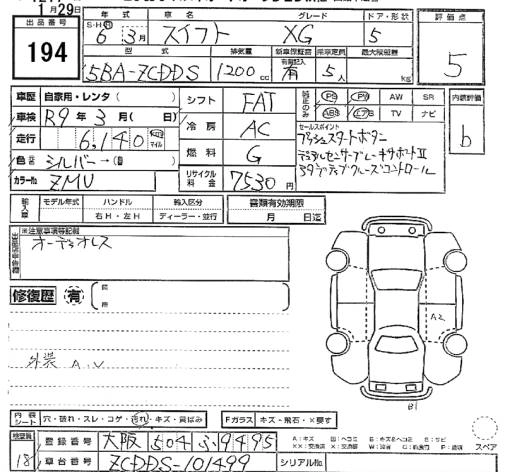 月29日
出品番号 年式 車名 グレード ドア・形状 評価点
194
S・H・R 6年3月 スイフト XG 5 5
型式 排気量 新車保証書 乗車定員 最大積載量
5BA-ZCDDS 1200cc 有 5人 kg
車歴 自家用・レンタ( )
車検 R9年3月(日)
走行 6,140 km マイル
色 シルバー→( )
カラーNo ZMU
シフト FAT
冷房 AC
燃料 G
リサイクル料金 7530円
純正のみ PS PW AW SR
ABS エアB TV ナビ
内装評価 b
セールスポイント
プッシュスタートボタン
デュアルセンサーブレーキサポートII
アダプティブクルーズコントロール
輸入車 モデル年式 ハンドル 輸入区分 書類有効期限
右H・左H ディーラー・並行 月 日迄
※注意事項等記載
オーディオレス
修復歴 有
外装 A,U
A2
B1
内装 シート 穴・破れ・スレ・コゲ・汚れ・キズ・肩ばみ Fガラス キズ・飛石・X要す
検査員 18
登録番号 大阪 504 ふ 9495
車台番号 ZCDDS-101499 シリアルNo.
A:キズ
スペア